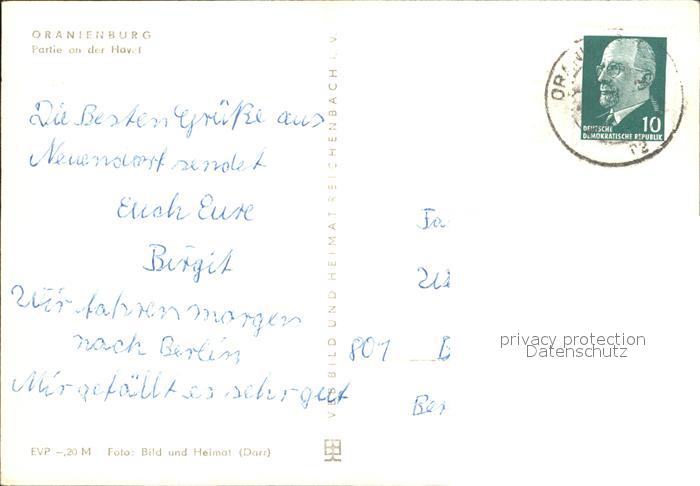 ORANIENBURG
Partie an der Havel
Die Besten Grüße aus
Neuendorf sendet
Euch Eure
Birgit
Wir fahren morgen
nach Berlin
Mir gefällt es sehr gut
EVP –,20 M Foto: Bild und Heimat (Darr)
VEB BILD UND HEIMAT REICHENBACH I. V.
10
DEUTSCHE
DEMOKRATISCHE REPUBLIK
801
privacy protection
Datenschutz